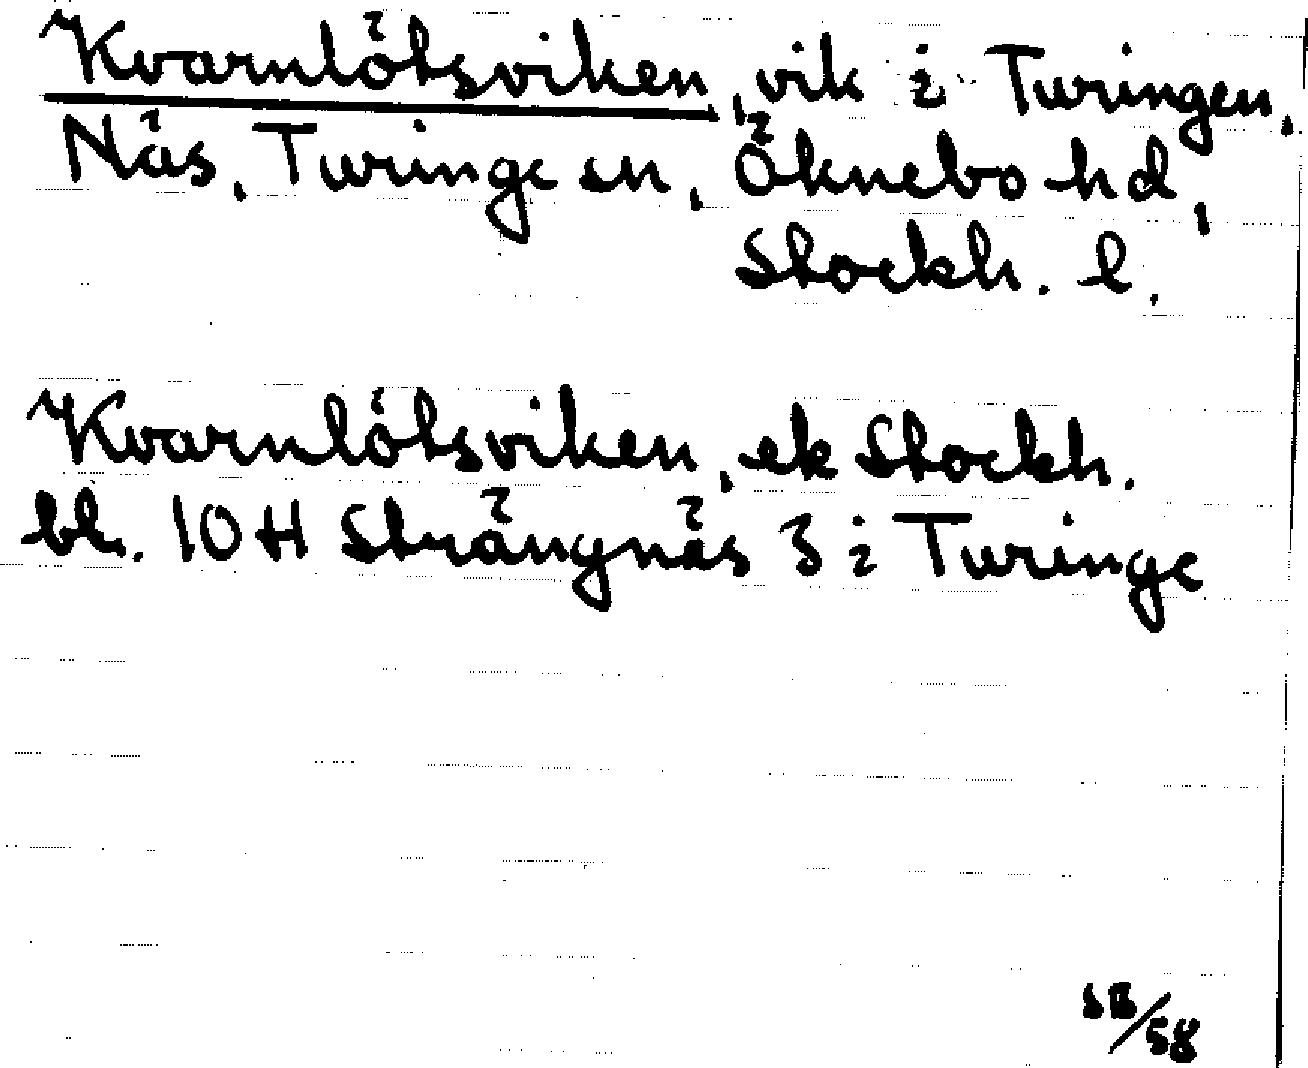 Kvarnlötsviken, vik i Turingen,
Näs, Turinge sn, Öknebo hd,
Stockh. l.
Kvarnlötsviken, ek Stockh.
bl. 10 H Strängnäs 3 i Turinge
SB/58